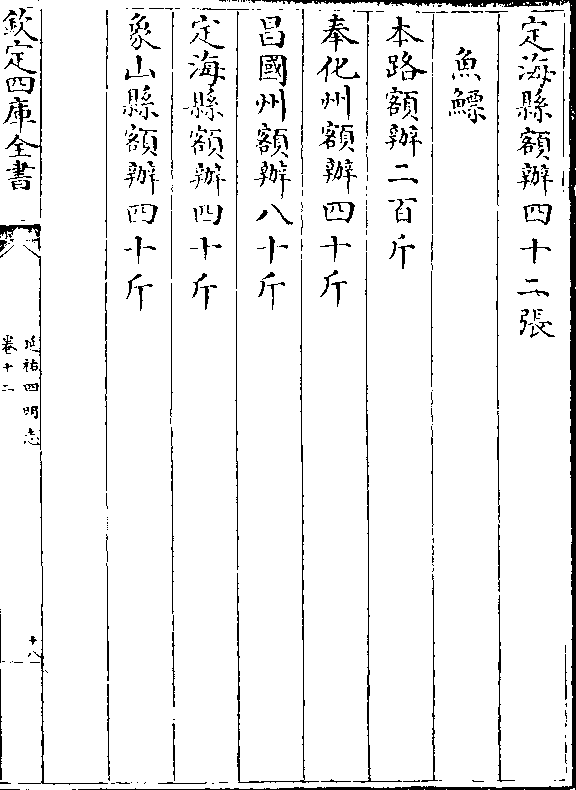 定海縣額辦四十二張
魚鰾
本路額辦二百斤
奉化州額辦四十斤
昌國州額辦八十斤
定海縣額辦四十斤
象山縣額辦四十斤
欽定四庫全書
延祐四明志
卷十二
十八